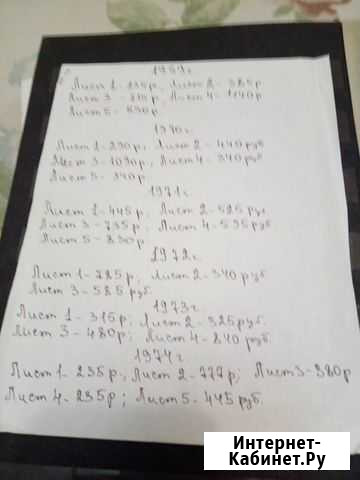 1969г.
Лист 1-235р, Лист 2-385р
Лист 3 - 810р, Лист 4-1140р
Лист 5-890р.
1970г.
Лист 1-290р; Лист 2-440руб
Лист 3-1090р, Лист 4-340руб
Лист 5-340р.
1971г.
Лист 1-445р, Лист 2-525руб
Лист 3-735р, Лист 4-595руб.
Лист 5-830р.
1972г.
Лист 1-785р, Лист 2-340руб.
Лист 3-585руб.
1973г.
Лист 1-315р; Лист 2-325руб.
Лист 3-480р; Лист 4-840руб.
1974г
Лист 1-235р; Лист 2-777р; Лист 3-380р
Лист 4-235р; Лист 5-445руб.
Интернет-
Кабинет.Ру